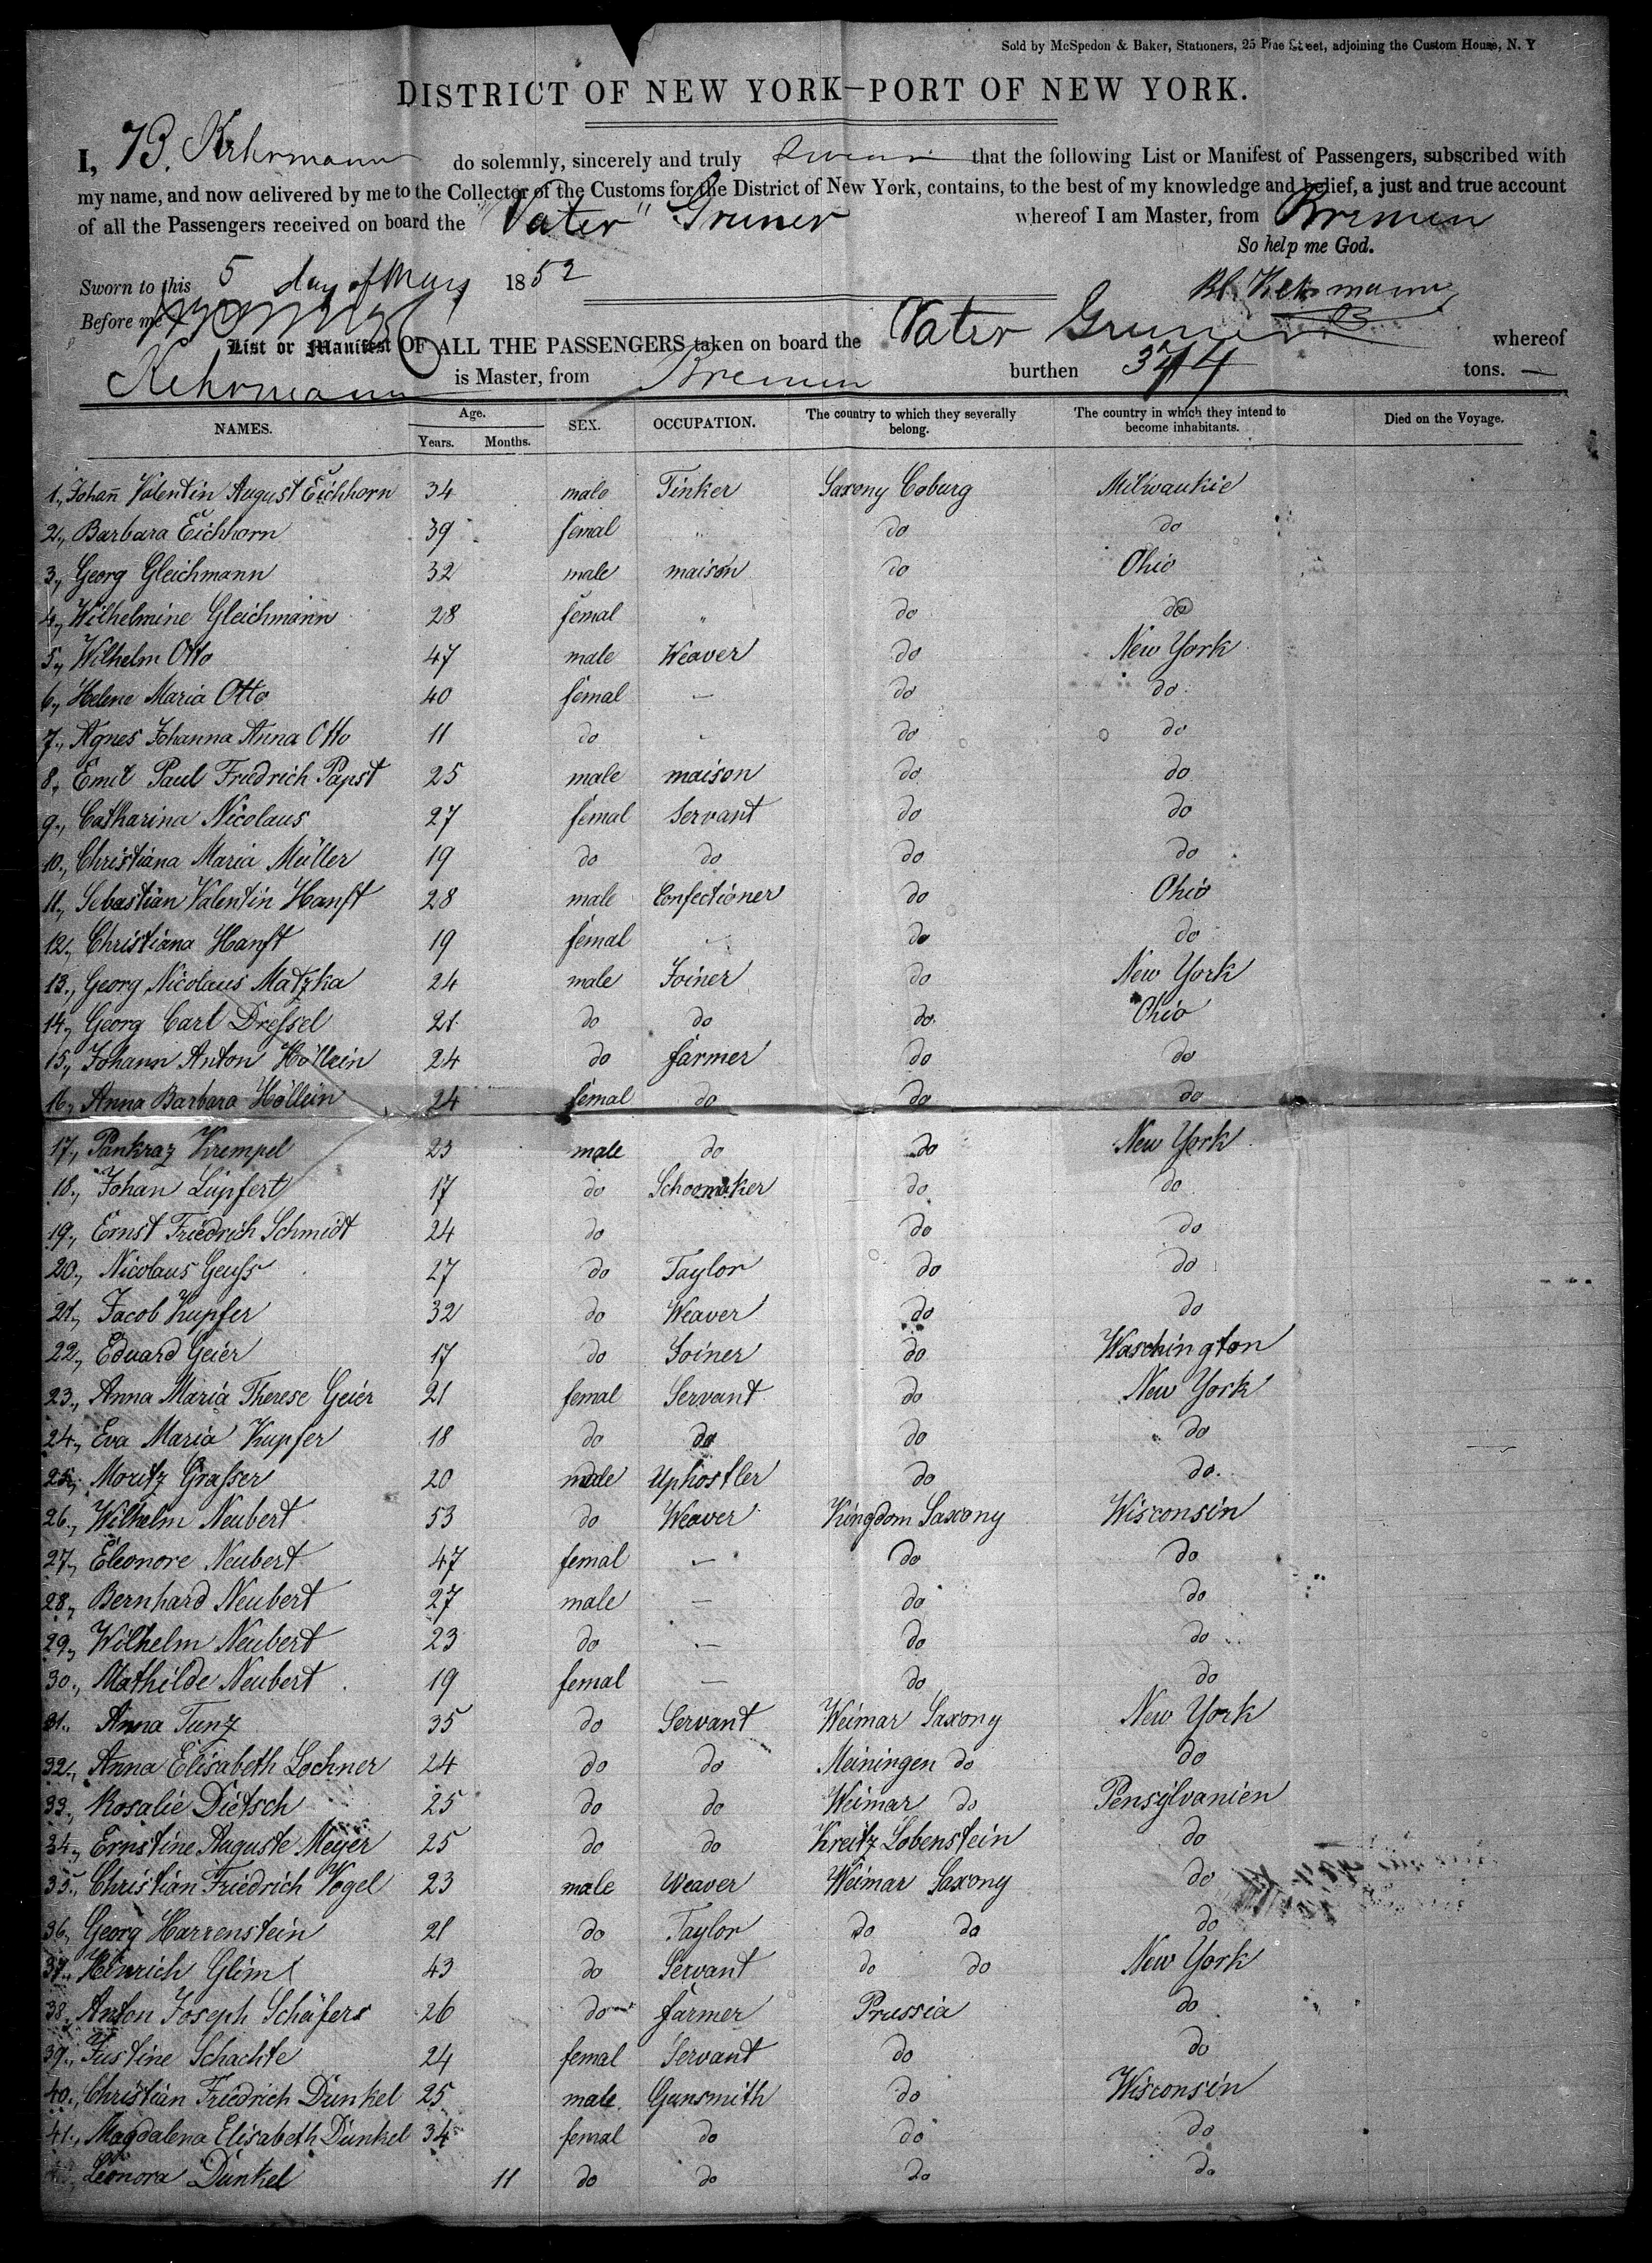 Sold by McSpedon & Baker, Stationers, 25 Pine Street, adjoining the Custom House, N. Y
DISTRICT OF NEW YORK—PORT OF NEW YORK.
I, B. Kehrmann do solemnly, sincerely and truly swear that the following List or Manifest of Passengers, subscribed with
my name, and now delivered by me to the Collector of the Customs for the District of New York, contains, to the best of my knowledge and belief, a just and true account
of all the Passengers received on board the "Vater" Gruner whereof I am Master, from Bremen
So help me God.
Sworn to this 5 day of May 1852
B. Kehrmann
Before me
List or Manifest OF ALL THE PASSENGERS taken on board the Vater Gruner whereof
Kehrmann is Master, from Bremen burthen tons.
NAMES. Age. Years. Months. SEX. OCCUPATION. The country to which they severally belong. The country in which they intend to become inhabitants. Died on the Voyage.
1., Johañ Valentin August Eichhorn 34 male Tinker Saxony Coburg Milwaukie
2., Barbara Eichhorn 39 femal " do do
3., Georg Gleichmann 32 male maison do Ohio
4., Wilhelmine Gleichmann 28 femal " do do
5., Wilhelm Otto 47 male Weaver do New York
6., Helene Maria Otto 40 femal — do do
7., Agnes Johanna Anna Otto 11 do - do do
8., Emil Paul Friedrich Papst 25 male maison do do
9., Catharina Nicolaus 27 femal Servant do do
10., Christiana Maria Müller 19 do do do do
11., Sebastian Valentin Hanft 28 male Confectioner do Ohio
12., Christiana Hanft 19 femal - do do
13., Georg Nicolaus Matzka 24 male Joiner do New York
14., Georg Carl Dreſsel 21 do do do Ohio
15., Johann Anton Höllein 24 do farmer do do
16., Anna Barbara Höllein 24 femal do do do
17., Pankraz Krempel 23 male do do New York
18., Johan Lüpfert 17 do Schoomaker do do
19., Ernst Friedrich Schmidt 24 do do do
20., Nicolaus Geuſs 27 do Taylor do do
21., Jacob Kupfer 32 do Weaver do do
22., Eduard Geier 17 do Joiner do Waschington
23., Anna Maria Therese Geier 21 femal Servant do New York
24., Eva Maria Kupfer 18 do do do do
25., Moritz Graſser 20 male Uphostler do do
26., Wilhelm Neubert 53 do Weaver Kingdom Saxony Wisconsin
27., Eleonore Neubert 47 femal — do do
28., Bernhard Neubert 27 male — do do
29., Wilhelm Neubert 23 do — do do
30., Mathilde Neubert 19 femal — do do
31., Anna Tunz 35 do Servant Weimar Saxony New York
32., Anna Elisabeth Lochner 24 do do Meiningen do do
33., Rosalie Dietsch 25 do do Weimar do Pensylvanien
34., Ernstine Auguste Meyer 25 do do Kreitz Lobenstein do
35., Christian Friedrich Vogel 23 male Weaver Weimar Saxony do
36., Georg Harrenstein 21 do Taylor do do do
37., Heinrich Glim 43 do Servant do do New York
38., Anton Joseph Schäfers 26 do farmer Prussia do
39., Justine Schachte 24 femal Servant do do
40., Christian Friedrich Dünkel 25 male Gunsmith do Wisconsin
41., Magdalena Elisabeth Dünkel 34 femal do do do
Leonora Dünkel 11 do do do do